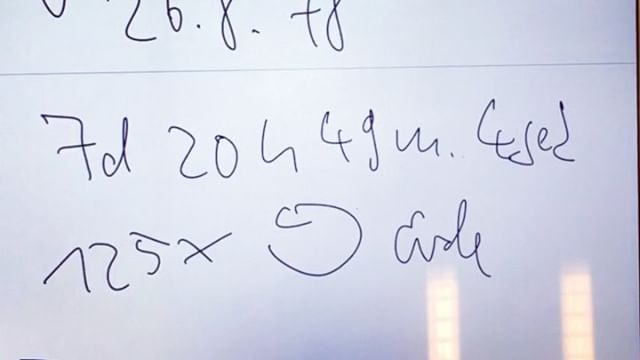 26.8. 78
7d 20h 49m. 4sec
125x Erde